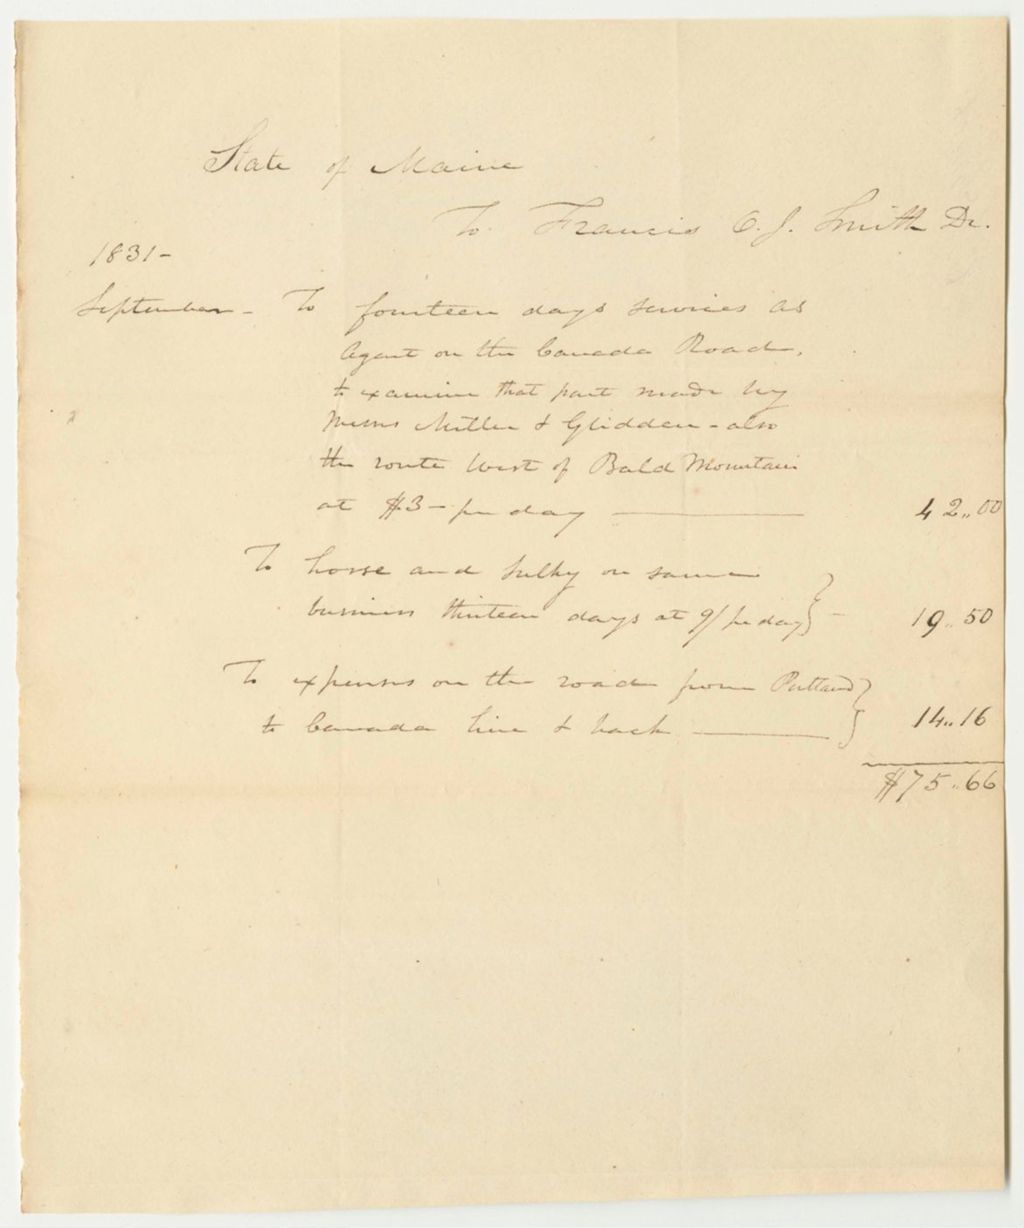 State of Maine
To Francis O. J. Smith Dr.
1831-
September - To fourteen days services as
Agent on the Canada Road,
to examine that part made by
Messrs Miller & Glidden - also
the route West of Bald Mountain
at $3 - per day 42.00
To horse and sulky on same
business thirteen days at 9/ per day - 19.50
To expenses on the road from Portland
to Canada line & back 14.16
$75.66